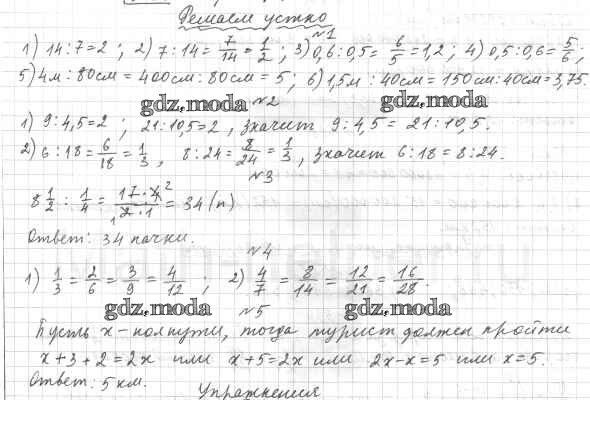 Решаем устно
№1
1) 14:7=2 ; 2) 7:14= 7/14 = 1/2 ; 3) 0,6:0,5= 6/5 =1,2 ; 4) 0,5:0,6= 5/6 ;
5) 4м:80см = 400см:80см = 5 ; 6) 1,5м : 40см = 150см:40см = 3,75.
gdz.moda №2 gdz.moda
1) 9:4,5=2 ; 21:10,5=2 , значит 9:4,5 = 21:10,5.
2) 6:18= 6/18 = 1/3 , 8:24= 8/24 = 1/3 , значит 6:18 = 8:24.
№3
8 1/2 : 1/4 = 17·4 2 / 1 2·1 = 34 (п)
Ответ: 34 пачки.
№4
1) 1/3 = 2/6 = 3/9 = 4/12 ; 2) 4/7 = 8/14 = 12/21 = 16/28 .
gdz.moda №5 gdz.moda
Пусть x - полпути, тогда турист должен пройти
x+3+2=2x или x+5=2x или 2x-x=5 или x=5.
Ответ: 5 км.
Упражнения